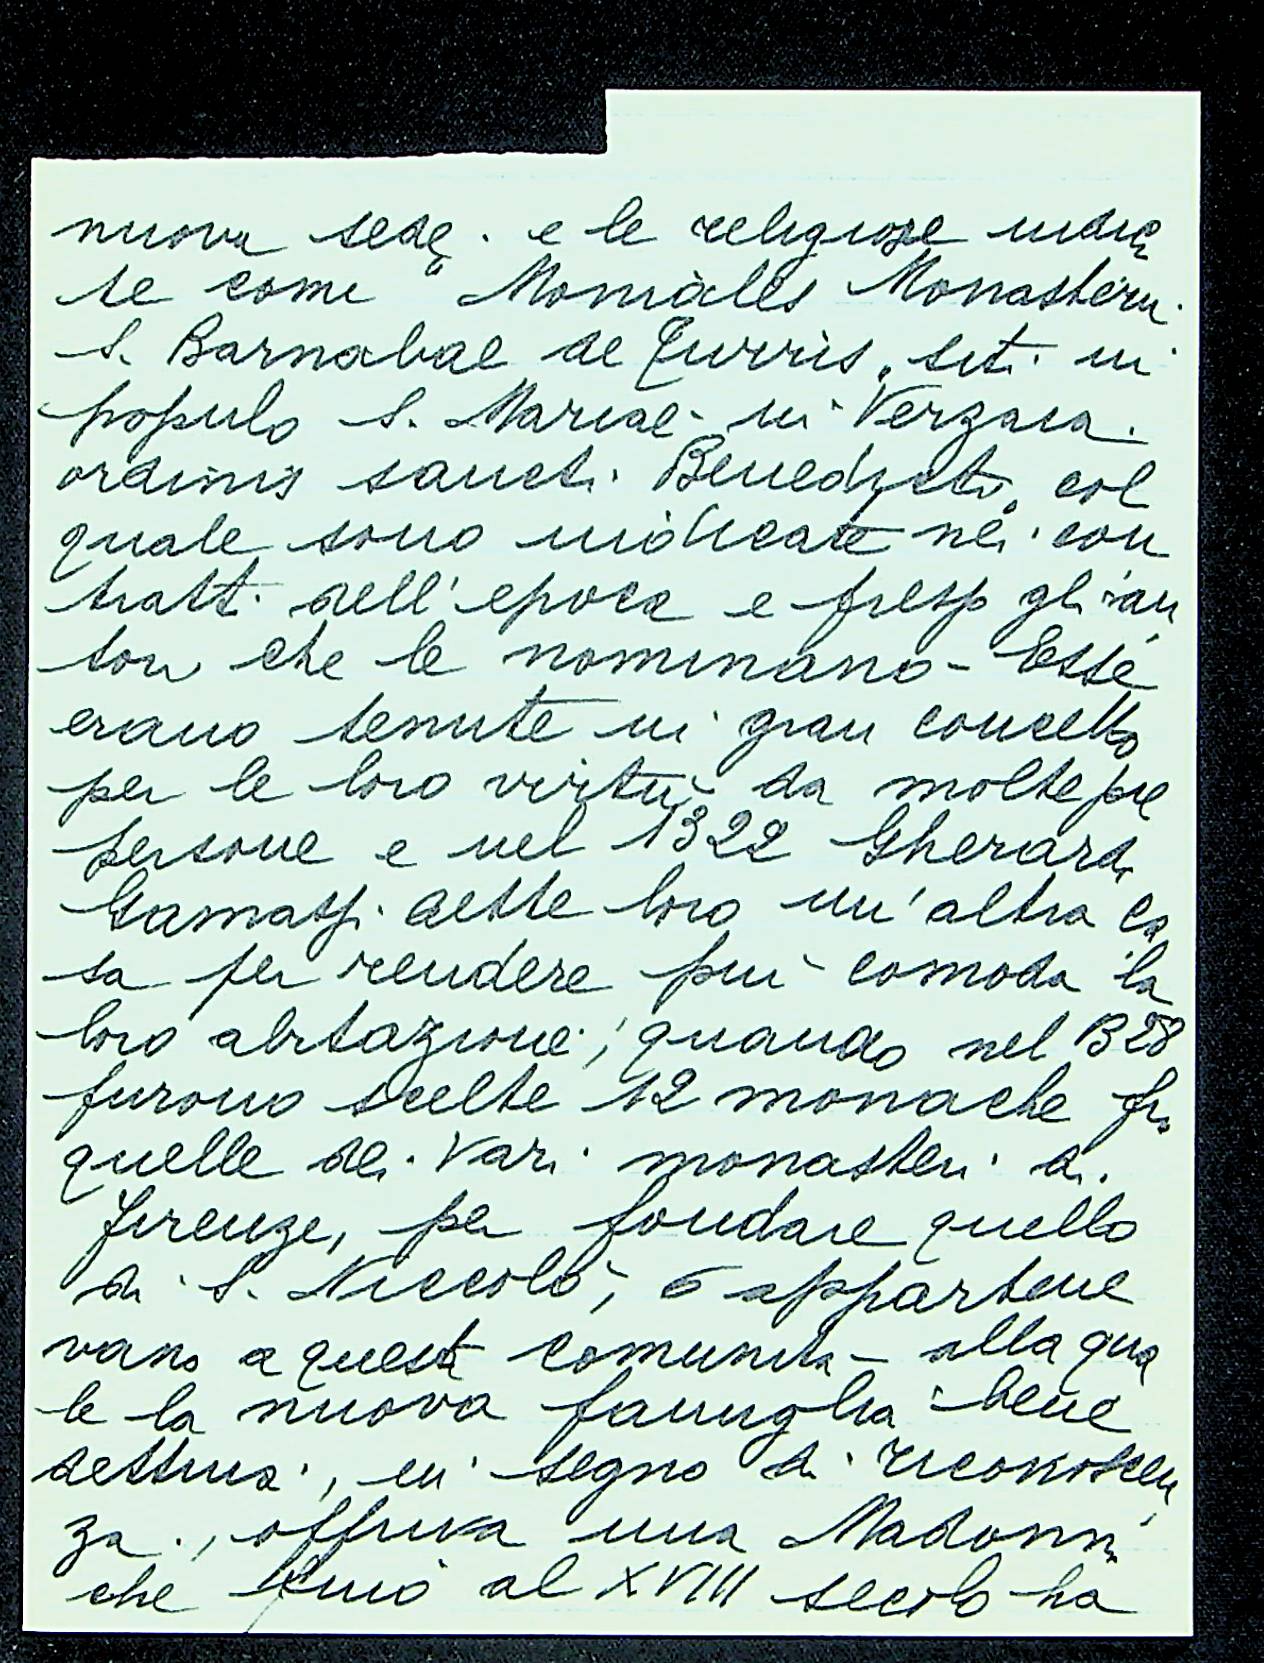 nuova sede. e le religiose indica
te come "Moniales Monasterii
S. Barnabae de Turris, siti in
populo S. Mariae in Verzaia.
ordinis sancti Benedicti" col
quale sono indicate nei con
tratti dell'epoca e presso gli au
tori che le nominano - Esse
erano tenute in gran concetto
per le loro virtù da molte pie
persone e nel 1322 Gherardi
dette loro un'altra ca
sa per rendere più comoda la
loro abitazione; quando nel 1328
furono scelte 12 monache fra
quelle dei vari monasteri di
Firenze, per fondare quello
di S. Niccolò, 6 appartene
vano a questa comunità - alla qua
le la nuova famiglia bene
dettina, in segno di riconoscen
za, offriva una Madonna
che fino al XVIII secolo ha